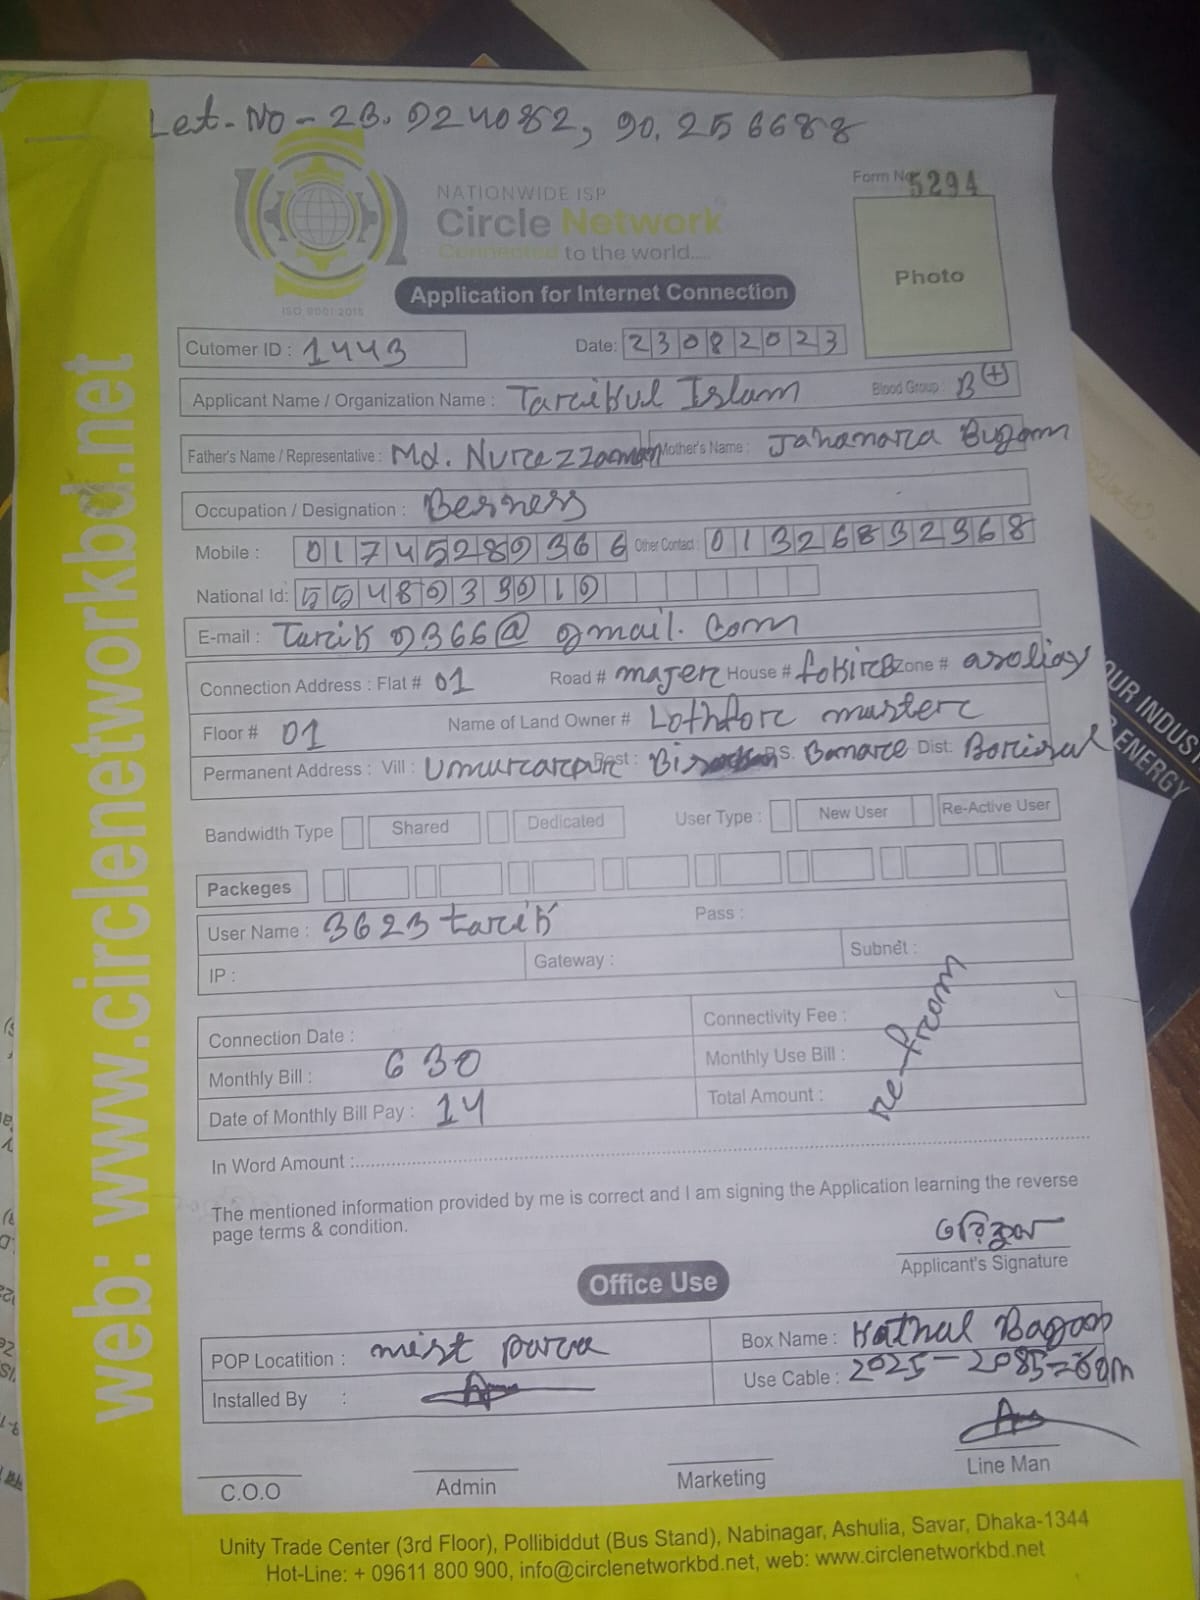 Let. No - 23.924082, 90.256688
Form No 5294
NATIONWIDE ISP
Circle Network
Connected to the world.....
ISO 9001:2015
Photo
Application for Internet Connection
Cutomer ID : 1443 Date: 23082023
Applicant Name / Organization Name : Tarikul Islam Blood Group : B+
Father's Name / Representative : Md. Nurezzaman Mother's Name : Jahanara Bugom
Occupation / Designation : Besness
Mobile : 01745289366 Other Contact : 01326832968
National Id: 5548933919
E-mail : Tarik9366@gmail.com
Connection Address : Flat # 01 Road # majer House # fokir Zone # asoliay
Floor # 01 Name of Land Owner # Lothfor master
Permanent Address : Vill : Umurarpur Post : P.S. Banare Dist: Borisal
Bandwidth Type Shared Dedicated User Type : New User Re-Active User
Packeges
User Name : 3623tarik Pass :
IP : Gateway : Subnet :
Connection Date : Connectivity Fee :
Monthly Bill : 630 Monthly Use Bill :
Date of Monthly Bill Pay : 14 Total Amount :
re-from
In Word Amount :
The mentioned information provided by me is correct and I am signing the Application learning the reverse
page terms & condition.
তরিকুল
Applicant's Signature
Office Use
POP Locatition : mist para Box Name : Kathal Bagan
Installed By : Use Cable : 2025-2085=60m
C.O.O Admin Marketing Line Man
Unity Trade Center (3rd Floor), Pollibiddut (Bus Stand), Nabinagar, Ashulia, Savar, Dhaka-1344
Hot-Line: + 09611 800 900, info@circlenetworkbd.net, web: www.circlenetworkbd.net
web: www.circlenetworkbd.net
OUR INDUST
ENERGY